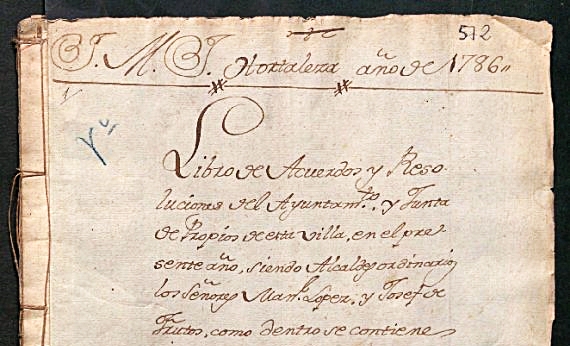 512
J. M. J. Hortaleza año de 1786
Libro de Acuerdos, y Reso-
luciones del Ayuntam.to, y Junta
de Propios de esta Villa, en el pre-
sente año, siendo Alcaldes ordinarios
los Señores Man.l Lopez, y Josef de
Frutos, como dentro se contiene